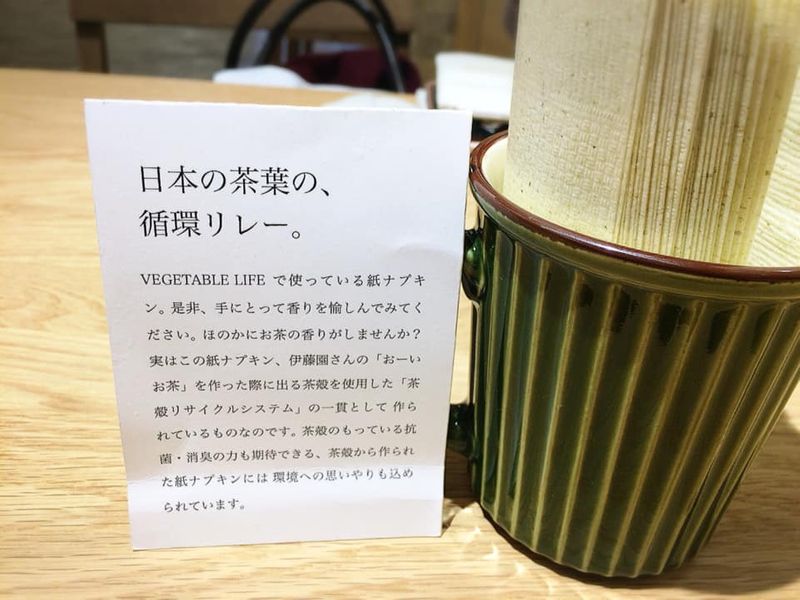 日本の茶葉の、
循環リレー。
VEGETABLE LIFE で使っている紙ナプキ
ン。是非、手にとって香りを愉しんでみてく
ださい。ほのかにお茶の香りがしませんか？
実はこの紙ナプキン、伊藤園さんの「おーい
お茶」を作った際に出る茶殻を使用した「茶
殻リサイクルシステム」の一貫として 作ら
れているものなのです。茶殻のもっている抗
菌・消臭の力も期待できる、茶殻から作られ
た紙ナプキンには 環境への思いやりも込め
られています。